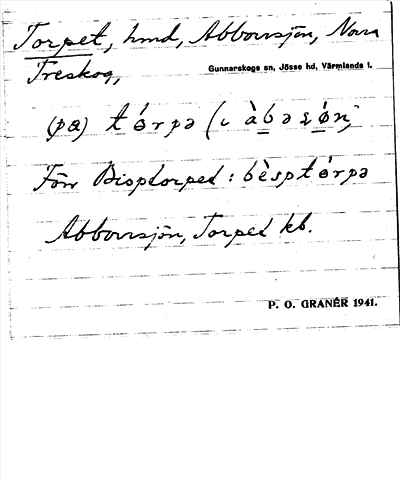 Torpet, hmd, Abborrsjön, Norra
Treskog,
Gunnarskogs sn, Jösse hd, Värmlands l.
(pa) tórpə (ı àbəʂón,
Förr Bisptorpet: bèsptórpə
Abborrsjön, Torpet kb.
P. O. GRANÉR 1941.